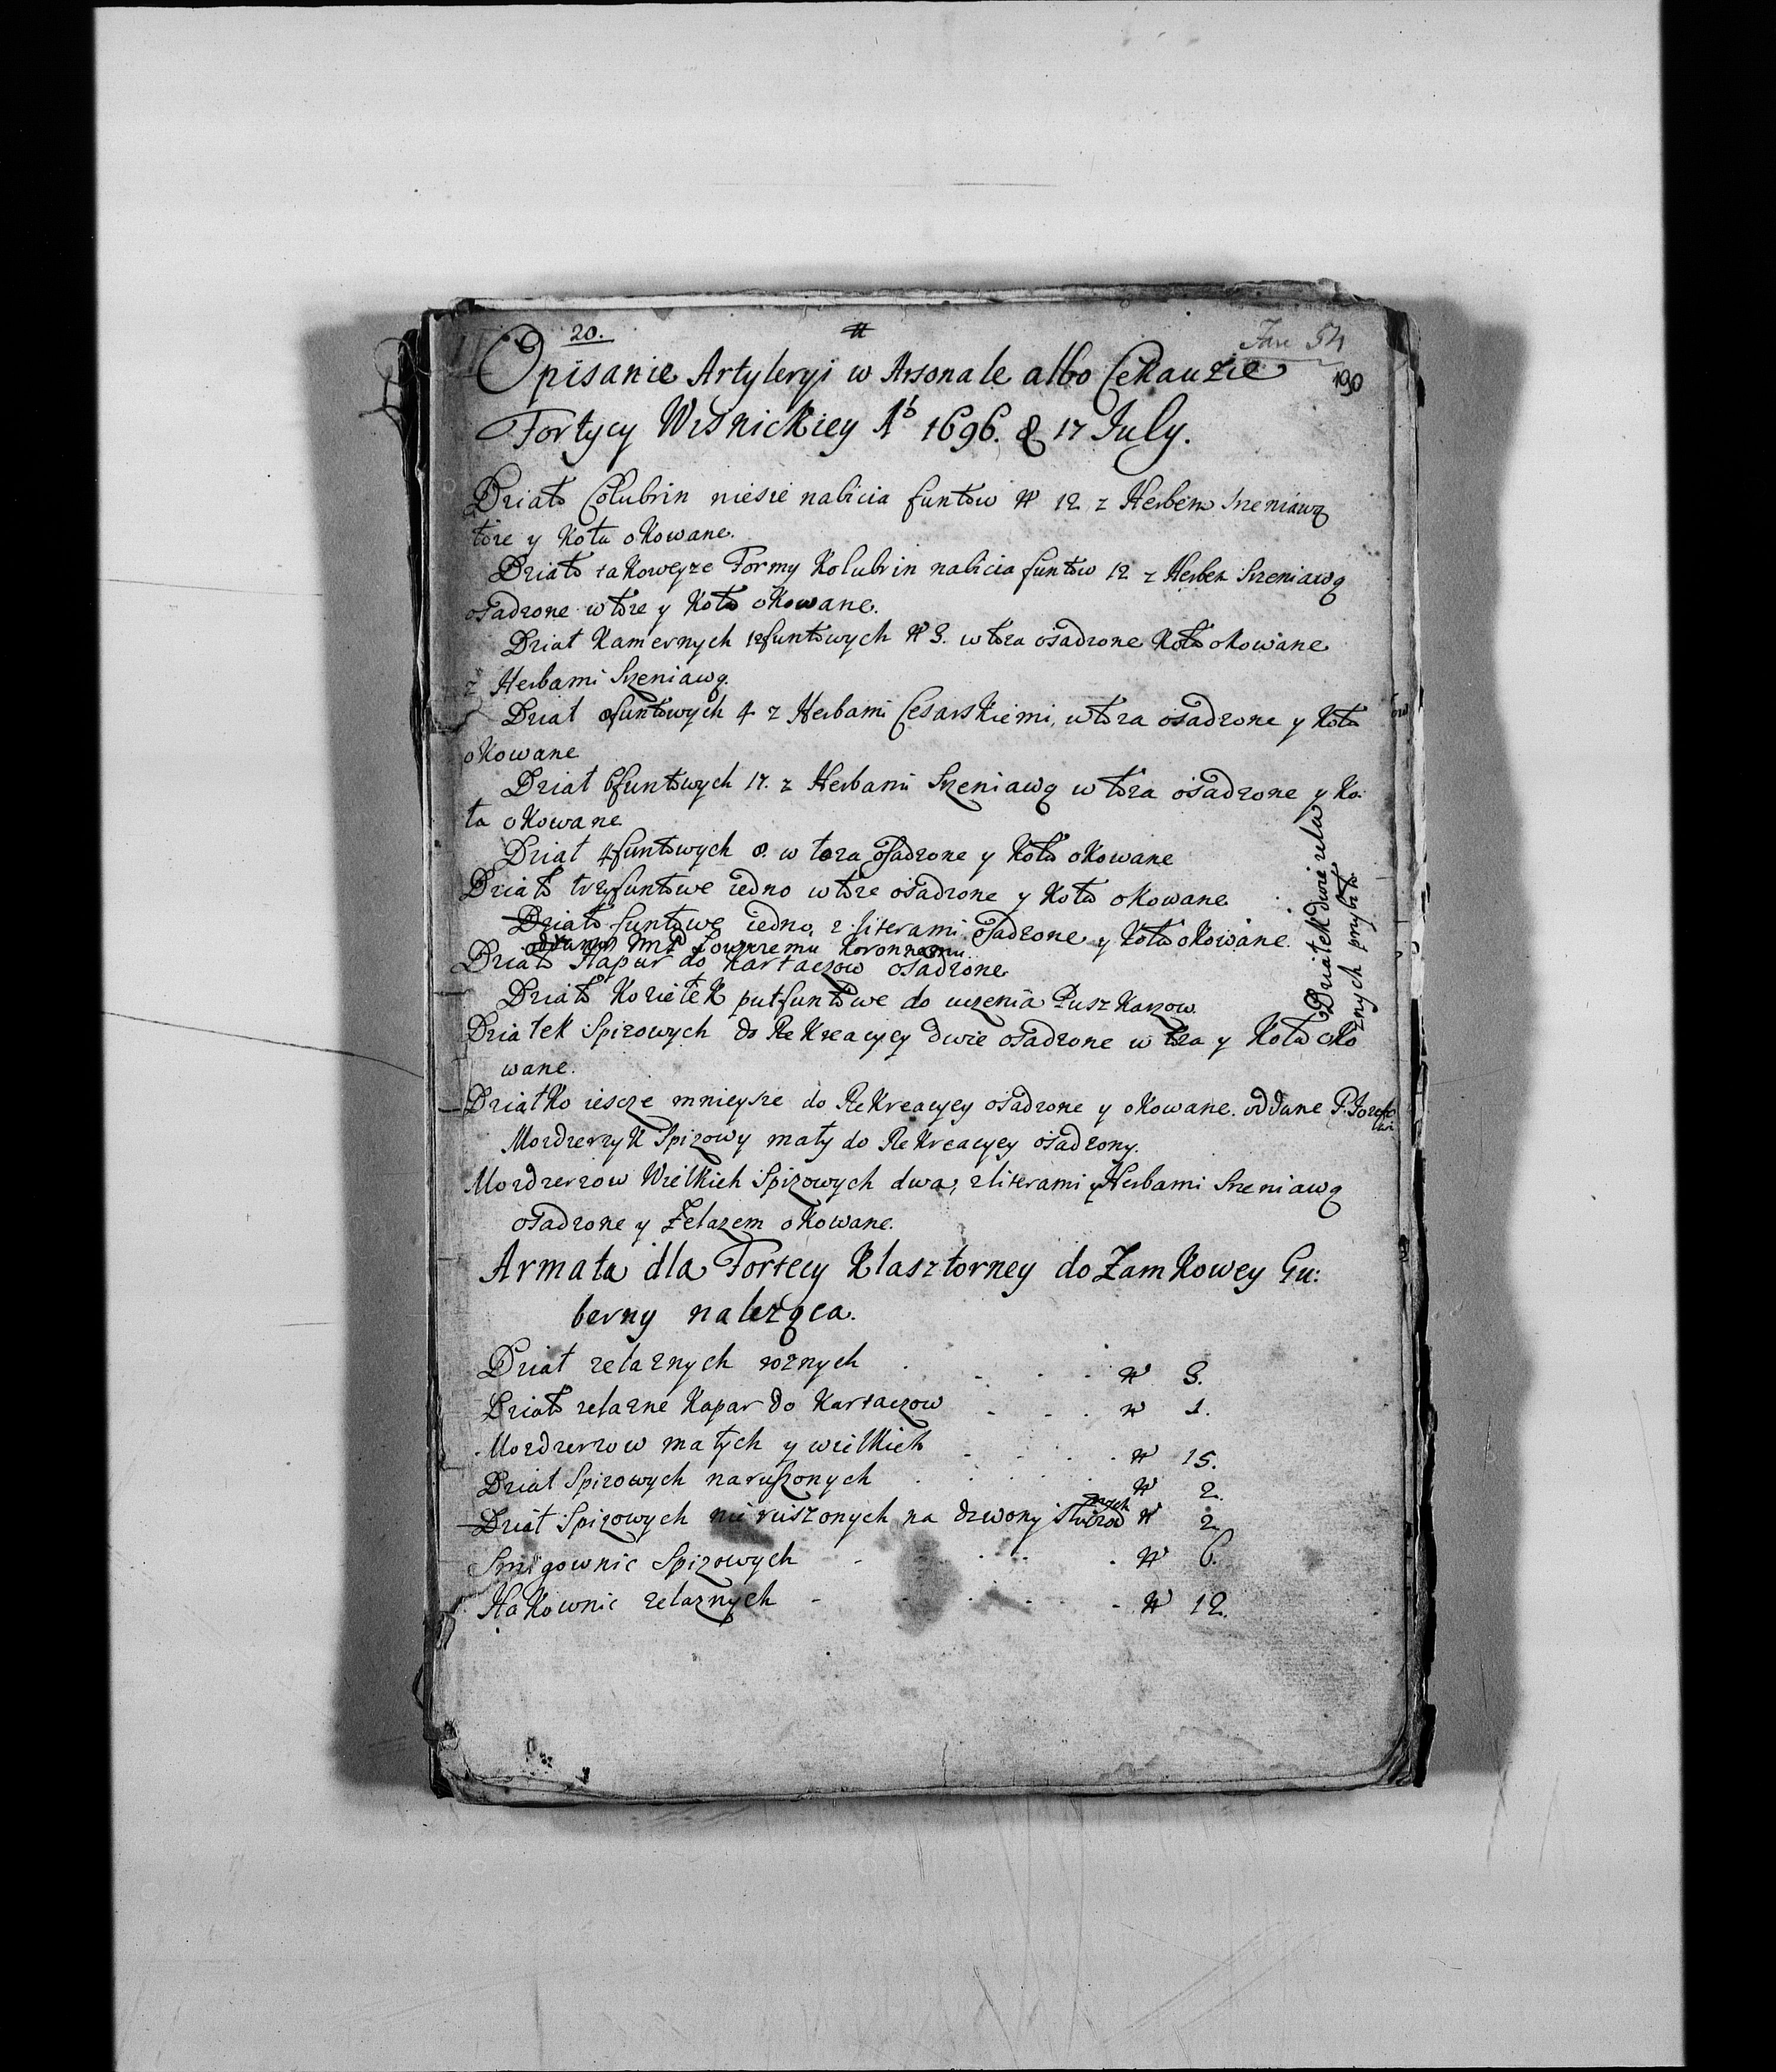 20.
190
Opisanie Artyleryi w Arsonale albo Cekauzie
Fortycy Wisnickiey Ao 1696. d 17 July.
Działo Colubrin niesie nabicia funtow N 12 z Herbem Szreniawą
łoże y koła okowane.
Działo takoweyże Formy Kolubrin nabicia funtow 12 z Herbem Szreniawą
osadzone w łoże y koła okowane.
Dział Kamernych 12funtowych N 3. w łoża osadzone koła okowane
z Herbami Szreniawą.
Dział 8funtowych 4 z Herbami Cesarskiemi, w łoża osadzone y koła
okowane
Dział 6funtowych 17. z Herbami Szreniawą w łoża osadzone y ko:
ła okowane
Dział 4funtowych 8. w łoża osadzone y koła okowane
Działo trzyfuntowe iedno w łoże osadzone y koła okowane
Działo funtowe iedno, z literami osadzone y koła okowane.
oddane JmP Łowczemu Koronnemu
Działo Hapur do Kartaczow osadzone
Działo Koziełek pułfuntowe do uczenia Puszkarzow.
Działek Spizowych do Rekreacyey dwie osadzone w łoża y koła oko
wane.
Działko iescze mnieysze do Rekreacyey osadzone y okowane. oddane P. Jozefo
wi
Mozdzerzyk Spizowy mały do Rekreacyey osadzony.
Mozdzerzow Wielkich Spizowych dwa, z literami y Herbami Szreniawą
osadzone y Żelazem okowane.
Działek dwie żela
znych przybyło
Armata dla Fortecy Klasztorney do Zamkowey Gu:
berny należąca.
Dział żelaznych roznych . . . N 3.
Działo żelazne Kapar do Kartaczow . . . N 1.
Mozdzerzow małych y wielkich . . . N 15.
Dział Spizowych naruszonych . . . N 2.
Dział Spizowych nie ruszonych na dzwony N 2
Smigownic Spizowych . . . N 6.
Hakownic żelaznych . . . N 12.